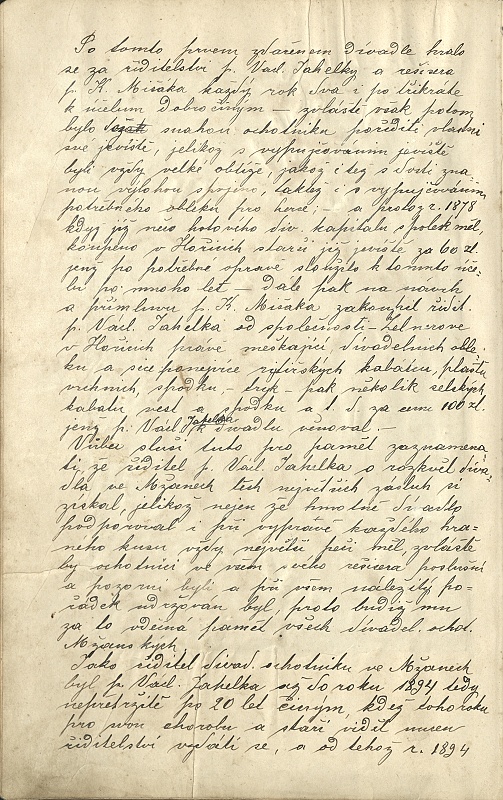 Po tomto prvém zdařeném divadle hrálo
se za ředitelství p. Václ. Jahelky a režisera
p. K. Mišáka každý rok dva i po třikráte
k účelům dobročiným – zvláště však potom
bylo snahou ochotníků poříditi vlastní
své jeviště, jelikož s vypujčováním jeviště
byli vždy velké obtíže, jakož i též s dosti zna
nou výlohou spojeno, taktéž i s vypujčováním
potřebného obleku pro herce; – a protož r. 1878
když již něco hotového div. kapitálu spolek měl,
koupeno v Hořicích starší již jeviště za 60 zl.
jenž po potřebné opravě sloužilo k tomuto úče-
lu po mnoho let – Dále pak na návrh
a přímluvu p. K. Mišáka zakoupil ředit.
p. Václ. Jahelka od společnosti –
v Hořicích právě meškající, divadelních oble
ku a sice ponejvíce rytířských kabátců, pláštů
vrchních, spodků – – pak několik selských
kabátů, vest a spodků a t. d. za cenu 100 zl.
jenž p. Václ. Jahelka k divadlu věnoval. –
Vůbec sluší tuto pro pamět zaznamena
ti, že ředitel p. Václ. Jahelka o rozkvět diva-
dla ve Mžanech těch největších zásluh si
získal, jelikož nejen že hmotně divadlo
podporoval i při výpravě každého hra-
ného kusu vždy největší péči měl, zvláště
by ochotníci ve všem svého režisera poslušní
a pozorní byli a při všem náležitý po-
řádek udržován byl, proto budiž mu
za to vděčná pamět všech divadel. ochot.
Mžanských.
Jako ředitel divad. ochotníků ve Mžanech
byl p. Václ. Jahelka až do roku 1894 tedy
nepřetržitě po 20 let činným, když toho roku
pro svou chorobu a stáří viděl nucen
ředitelství vzdáti se, a od téhož r. 1894